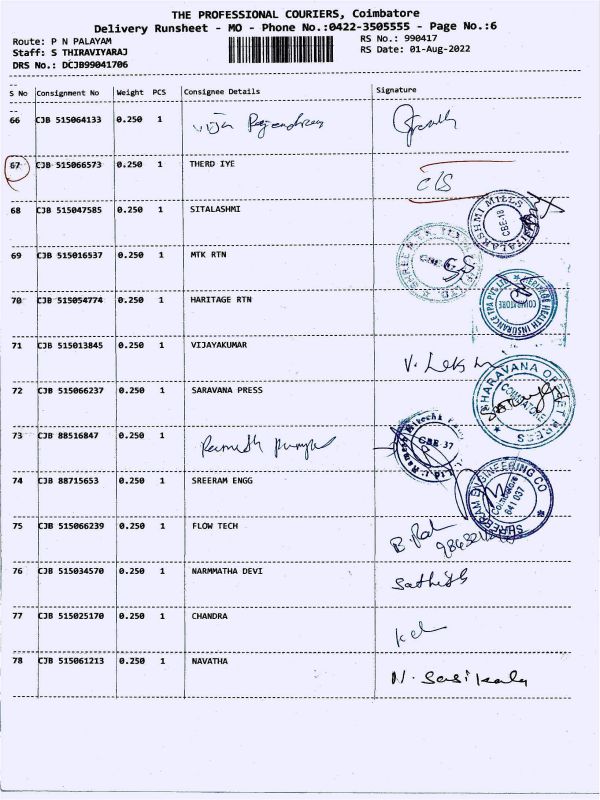 THE PROFESSIONAL COURIERS, Coimbatore
Delivery Runsheet - MO - Phone No.:0422-3505555 - Page No.:6
Route: P N PALAYAM RS No.: 990417
Staff: S THIRAVIYARAJ RS Date: 01-Aug-2022
DRS No.: DCJB99041706
S No Consignment No Weight PCS Consignee Details Signature
66 CJB 515064133 0.250 1
67 CJB 515066573 0.250 1 THERD IYE
C/S
68 CJB 515047585 0.250 1 SITALASHMI
CBE-18
69 CJB 515016537 0.250 1 MTK RTN
70 CJB 515054774 0.250 1 HARITAGE RTN
HEALTH INSURANCE TPA PVT LTD
COIMBATORE
71 CJB 515013845 0.250 1 VIJAYAKUMAR
72 CJB 515066237 0.250 1 SARAVANA PRESS
SHARAVANA OFFSET PRESS
COIMBATORE
73 CJB 88516847 0.250 1
CBE-37
74 CJB 88715653 0.250 1 SREERAM ENGG
SHREERAM ENGINEERING CO
Coimbatore
641 037
75 CJB 515066239 0.250 1 FLOW TECH
76 CJB 515034570 0.250 1 NARMMATHA DEVI
Sathish
77 CJB 515025170 0.250 1 CHANDRA
78 CJB 515061213 0.250 1 NAVATHA
N. Sasikala